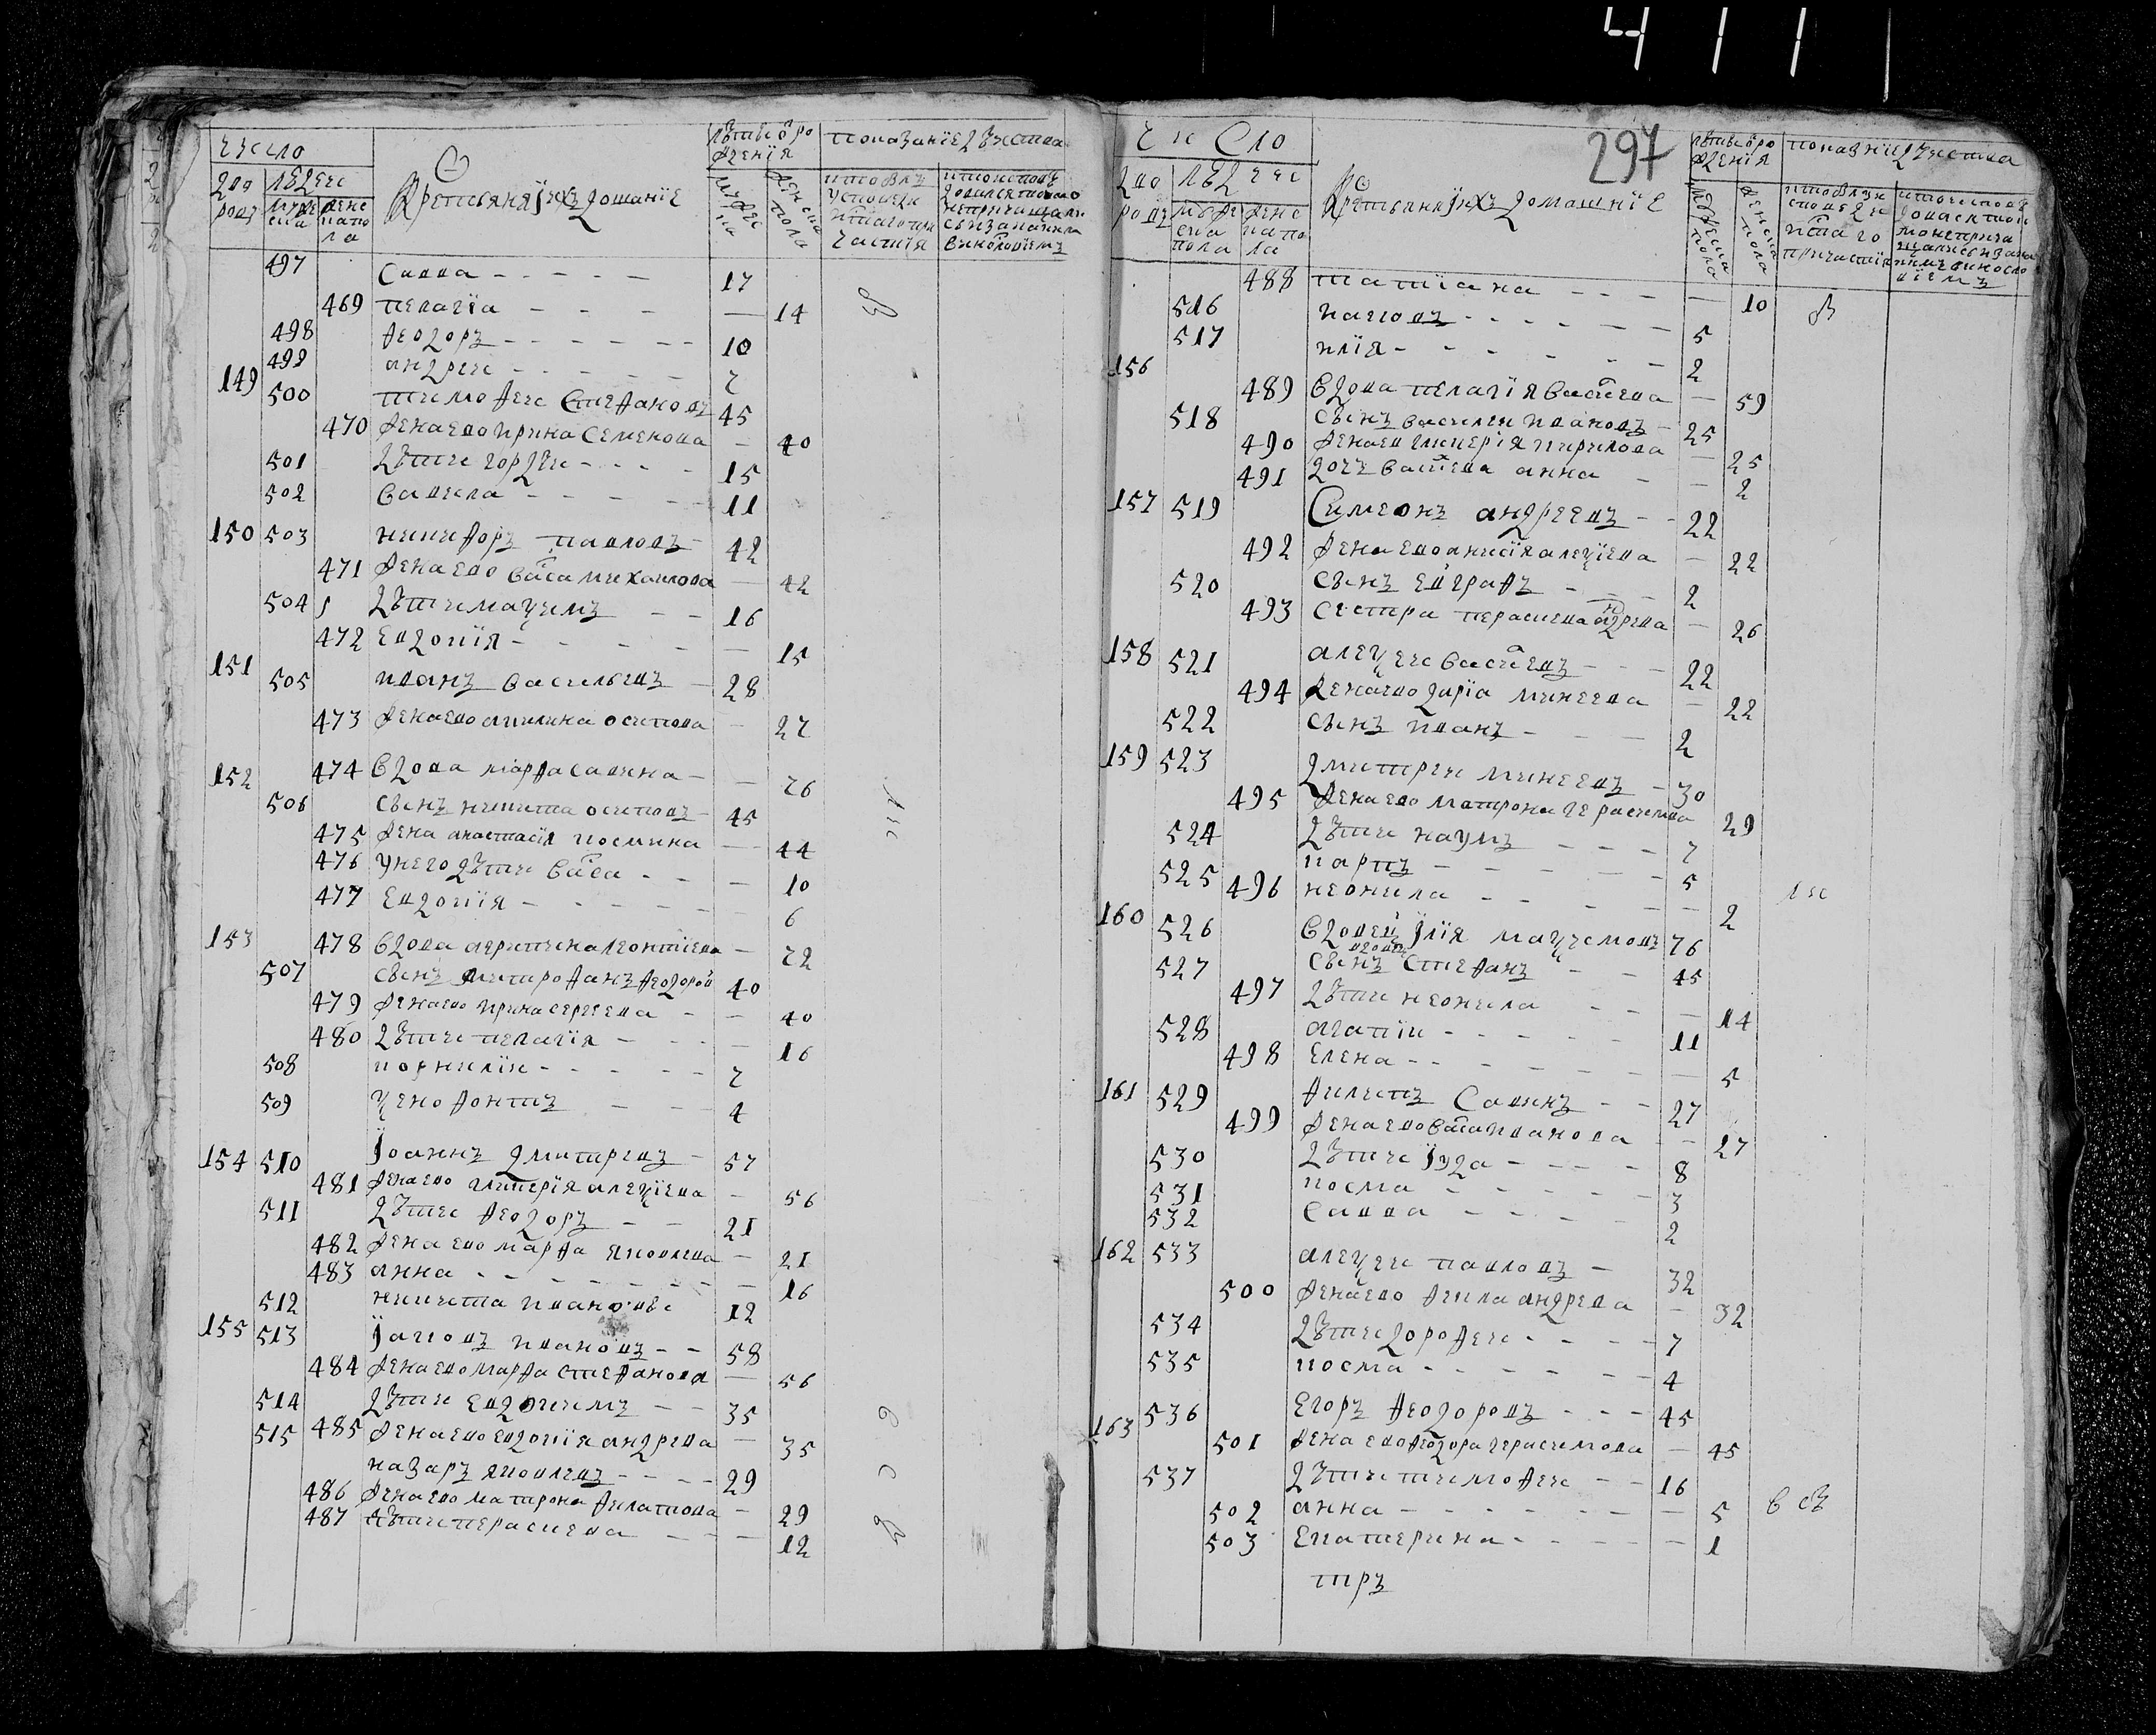 411
число
дворовъ людей
мужеска женска пола
Крестьяня и ихъ домашнїе
лѣта ѿ рожденїя
мужеска
женска пола
показанїе дѣйства
497 Савва - - - - - 17
469 пелагїа - - - - — 14
498 Феодоръ - - - - - - 10
499 андреи - - - - - 7
149 500 тимофеи Стефановъ 45
470 жена ево ирина семенова — 40
501 дѣти гордѣи - - - - 15
502 вавила - - - - - 11
150 503 никифоръ павловъ - 42
471 жена ево васса михаилова — 42
504 дѣти маѯимъ - - 16
472 Евдокїя - - - - - — 15
151 505 иванъ васильевъ - 28
473 жена ево акилина осипова - 27
152 474 вдова марфа савина - - 76
506 сынъ никита осиповъ - 45
475 жена анастасїя космина — 44
476 у него дѣти васса - - - 10
477 Евдокїя - - - - - - 6
153 478 вдова агрипина леонтїева - 72
507 сынъ митрофанъ феодоров 40
479 жена ево ирина сергеева - - 40
480 дѣти пелагїя - - - - 16
508 корнилїи - - - - - - 7
509 ѯенофонтъ - - - 4
154 510 Іоаннъ дмитревъ - 57
481 жена ево гликерїя алеѯїева - 56
511 дѣти феодоръ - - 21
482 жена ево марфа яковлева - 21
483 анна - - - - - - - 16
512 никита ивановъ 12
155 513 Іаковъ ивановъ - - 58
484 жена ево марфа стефанова — 56
514 дѣти евдокимъ - - 35
515 485 жена ево евдокїя андрева — 35
назаръ яковлевъ - - - - 29
486 жена ево матрона филатова - 29
487 дѣти пераскева - - - 12
297
число
дворовъ людеи
мужеска пола женска пола
Крестьяня и ихъ домашнїе
лѣта ѿ рожденїя
мужеска пола
женска пола
показнїе дѣиства
488 татїана - - - — 10
516 иаковъ - - - - - - 5
517 илїя - - - - - - 2
156 489 вдова пелагїя васильева — 59
518 сынъ василеи ивановъ - 25
490 жена ево гликерїя кирилова — 25
491 дочь васильева анна - - 2
157 519 Симеонъ андреевъ - - 22
492 жена ево анисїя алеѯїева - 22
520 сынъ евграфъ - - - 2
493 сестра пераскева андрева — 26
158 521 алеѯеи васильевъ - - - 22
494 жена ево дарїа минеева — 22
522 сынъ иванъ - - - 2
159 523 дмитреи минеевъ - 30
495 жена ево матрона герасимова 29
524 дѣти наумъ - - - 7
525 карпъ - - - - - - 5
496 неонила - - - - - 2
160 526 вдовец Ілїя маѯимовъ 76
527 сынъ стефанъ - - 45
497 дѣти неонила - - - 14
528 агапїи - - - - - 11
498 Елена - - - - - - - 5
161 529 филипъ Савинъ - - 27
499 жена ево васса иванова - - 27
530 дѣти Іуда - - - - 8
531 косма - - - - - - 3
532 савва - - - - - 2
162 533 алеѯеи павловъ - 32
500 жена ево фекла андрева — 32
534 дѣти дорофеи - - - - 7
535 косма - - - - - - 4
163 536 Егоръ феодоровъ - - - 45
501 жена ево феодора герасимова — 45
537 дѣти тимофеи - - 16
502 анна - - - - - - - 5
503 Екатерина - - - - - - 1